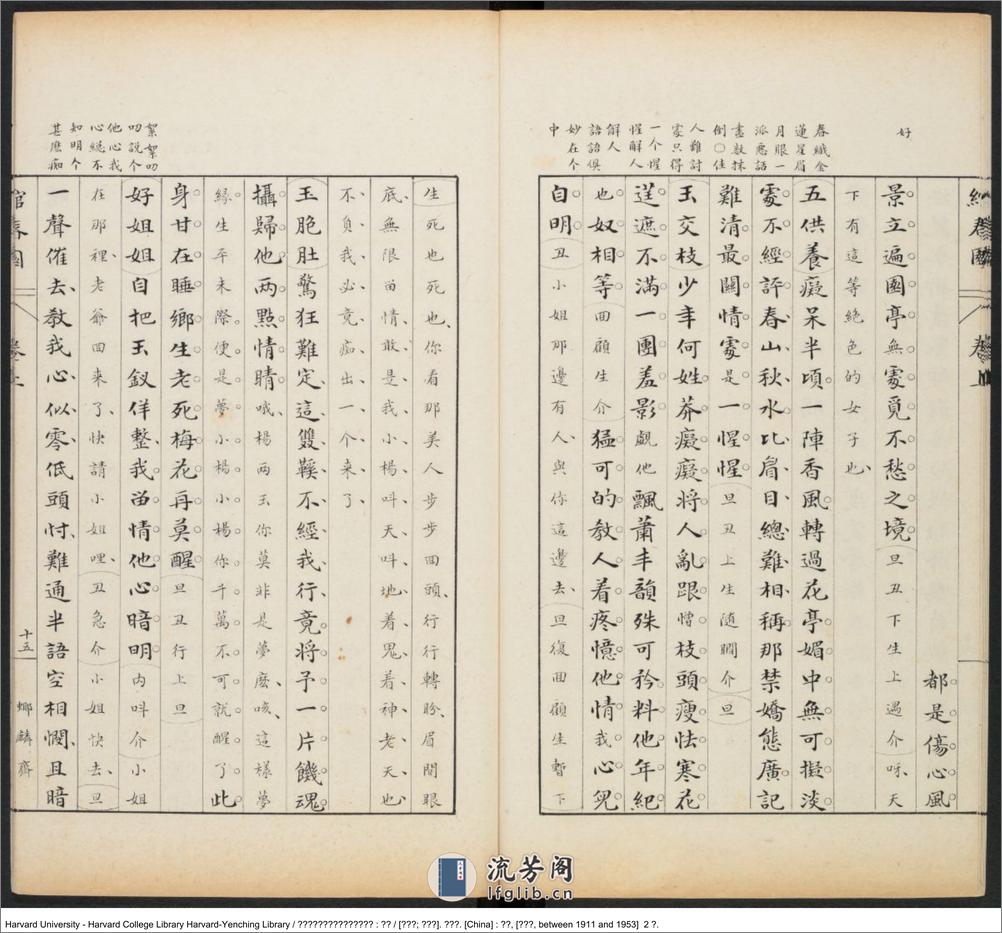 好
春纖金
蓮星眉
月眼一
派應話
盡數抹
倒○佳
人難討
家只得
一个惺
惺解人
解人
語語俱
妙在个
中
綰春園
卷上
都是傷心風
景立遍園亭無處覓不愁之境旦丑下生上遇介呀天
下有這等絕色的女子也
五供養癡呆半頃一陣香風轉過花亭媚中無可擬淡
處不經許春山秋水比眉目總難相稱那禁嬌態廣記
難清最關情處是一惺惺旦丑上生隨瞷介旦
玉交枝少年何姓莽癡癡將人亂跟憎枝頭瘦怯寒花
逞遮不滿一團羞影覷他飄蕭丰韻殊可矜料他年紀
也奴相等回顧生介猛可的教人着疼憶他情我心兒
自明丑小姐那邊有人與你這邊去旦復回顧生暫下
絮絮叨
叨說个
他心我
心總不
知明个
甚麽痴
生死也死也你看那美人步步回頭行行轉盼眉間眼
底無限畄情敢是我小楊呌天呌地着鬼着神老天也
不負我必竟痴出一个來了
玉胞肚驚狂難定這雙鞵不經我行竟將予一片餓魂
攝歸他兩點情睛哦楊兩玉你莫非是夢麽咳這樣夢
緣生平未際便是夢小楊小楊你千萬不可就醒了此
身甘在睡鄉生老死梅花再莫醒旦丑行上旦
好姐姐自把玉釵佯整我畄情他心暗明內呌介小姐
在那裡老爺回來了快請小姐哩丑急介小姐快去旦
一聲催去教我心似零低頭忖難通半語空相憫且暗
綰春園
卷上
十五
螂麟齋
流芳阁
lfglib.cn
Harvard University - Harvard College Library Harvard-Yenching Library / ??????????????? : ?? / [???; ???]. ???. [China] : ??, [???, between 1911 and 1953] 2 ?.